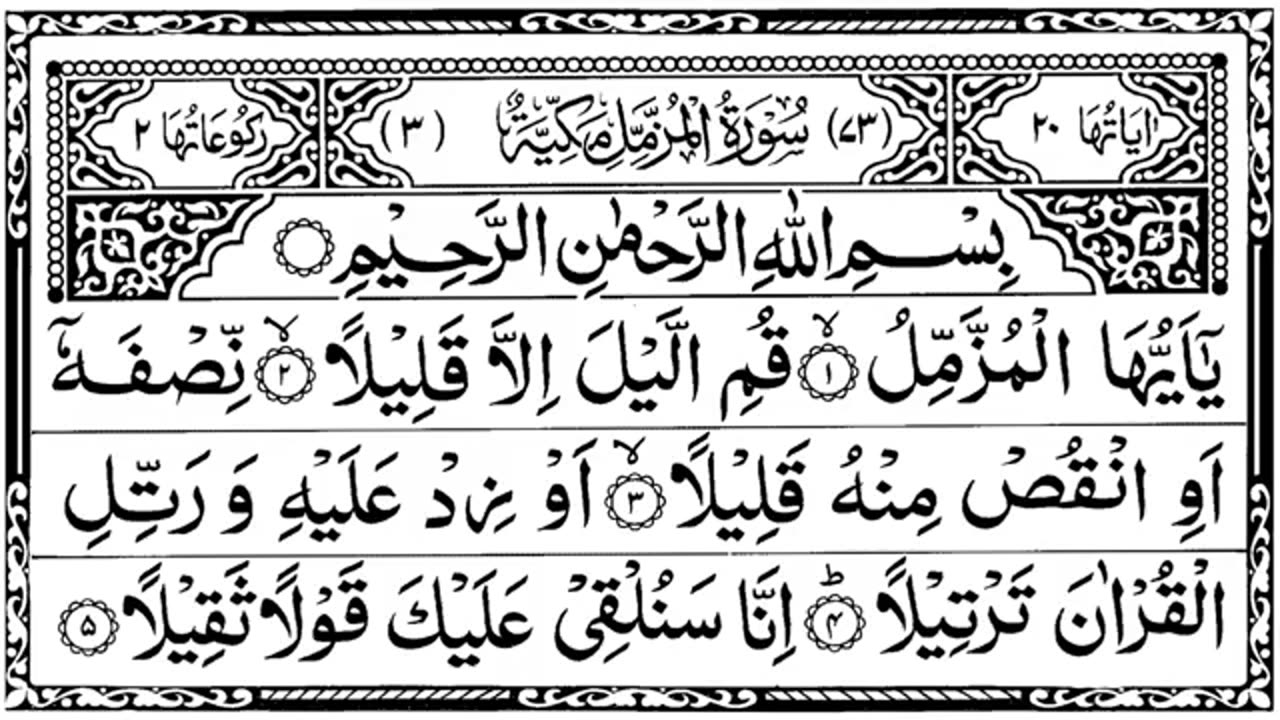 اٰیَاتُهَا ٢٠ (٧٣) سُوْرَةُ الْمُزَّمِّلِ مَكِّيَّةٌ (٣) رُكُوْعَاتُهَا ٢
بِسْمِ اللّٰهِ الرَّحْمٰنِ الرَّحِيْمِ
يٰۤاَيُّهَا الْمُزَّمِّلُ ۙ﴿١﴾ قُمِ الَّيْلَ اِلَّا قَلِيْلًا ۙ﴿٢﴾ نِّصْفَهٗۤ
اَوِ انْقُصْ مِنْهُ قَلِيْلًا ۙ﴿٣﴾ اَوْ زِدْ عَلَيْهِ وَ رَتِّلِ
الْقُرْاٰنَ تَرْتِيْلًا ؕ﴿۴﴾ اِنَّا سَنُلْقِيْ عَلَيْكَ قَوْلًا ثَقِيْلًا ﴿۵﴾